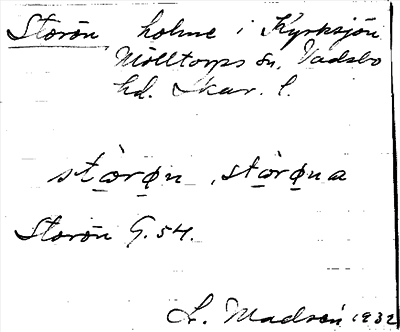 Storön holme i Kyrksjön
Mölltorps sn, Vadsbo
hd. Skar. l.
stὼrø̠n, stὼrø̠na
Storön G. 54.
L. Madsén 1932